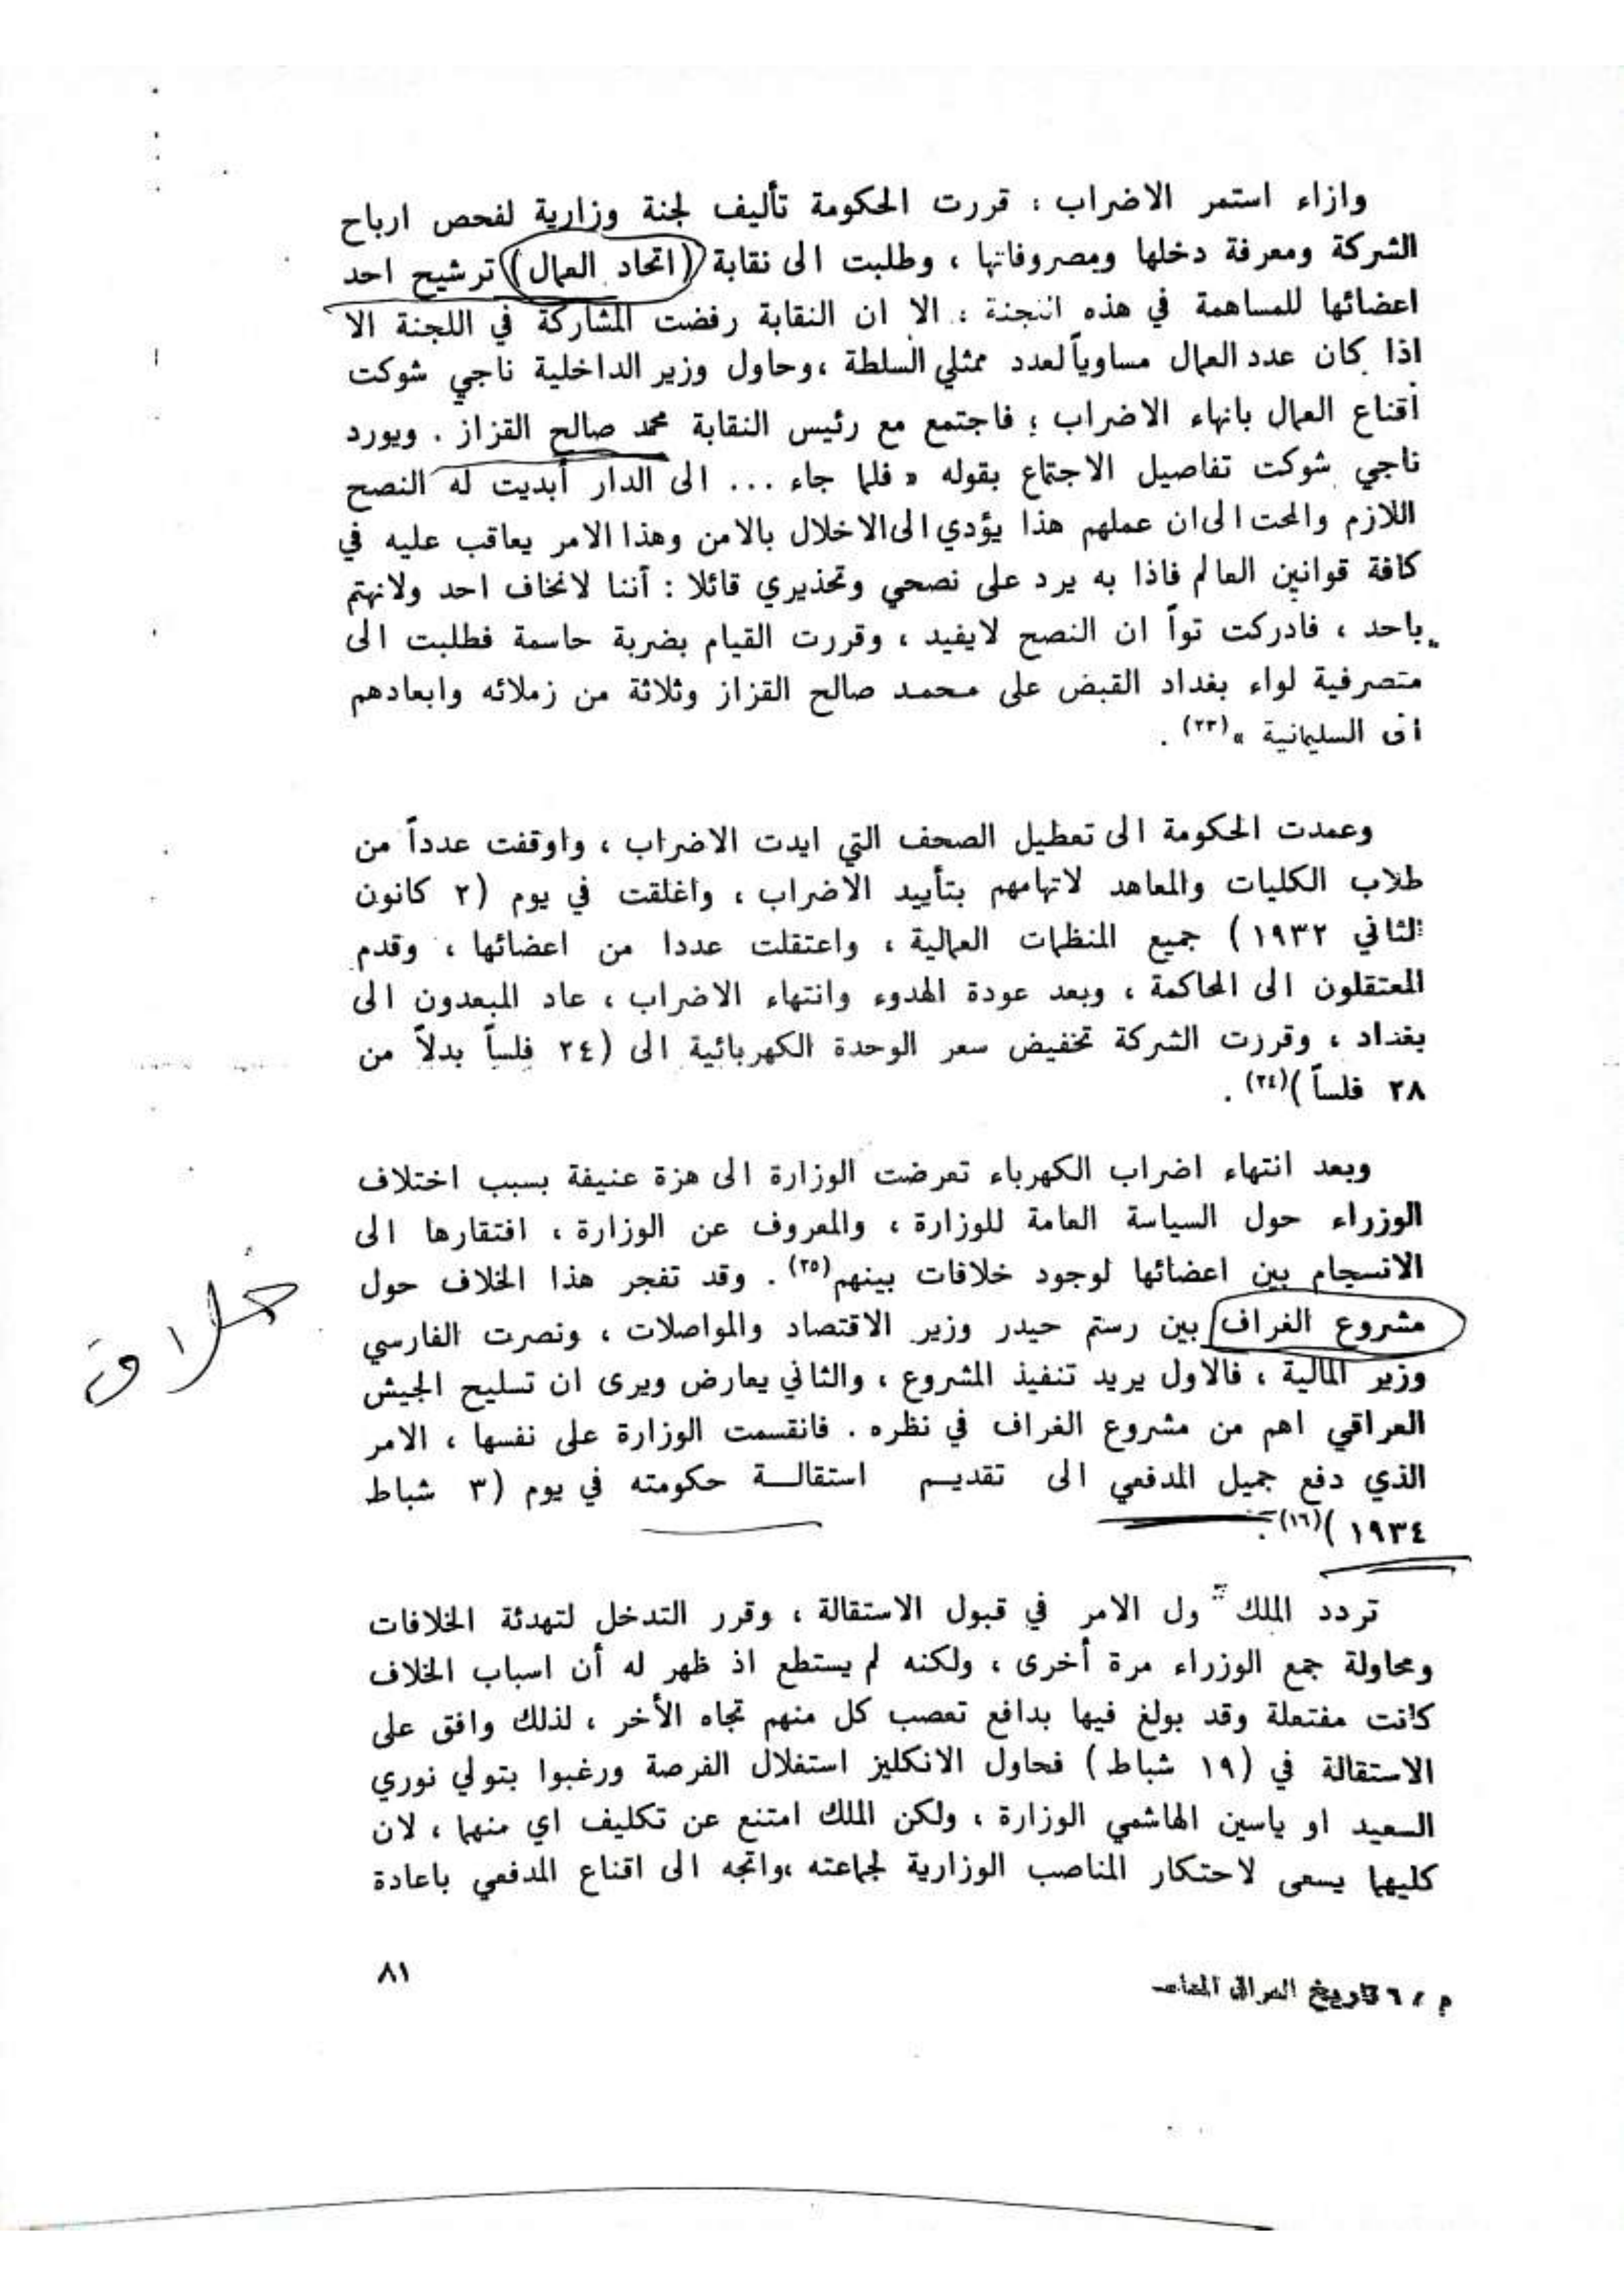 وازاء استمر الاضراب ؛ قررت الحكومة تأليف لجنة وزارية لفحص ارباح
الشركة ومعرفة دخلها ومصروفاتها ، وطلبت الى نقابة (اتحاد العمال) ترشيح احد
اعضائها للمساهمة في هذه اللجنة ؛ الا ان النقابة رفضت المشاركة في اللجنة الا
اذا كان عدد العمال مساوياً لعدد ممثلي السلطة ،وحاول وزير الداخلية ناجي شوكت
اقناع العمال بانهاء الاضراب ؛ فاجتمع مع رئيس النقابة محمد صالح القزاز . ويورد
ناجي شوكت تفاصيل الاجتماع بقوله « فلما جاء ... الى الدار أبديت له النصح
اللازم والمحت الى ان عملهم هذا يؤدي الى الاخلال بالامن وهذا الامر يعاقب عليه في
كافة قوانين العالم فاذا به يرد على نصحي وتحذيري قائلا : أننا لانخاف احد ولانهتم
باحد ، فادركت تواً ان النصح لايفيد ، وقررت القيام بضربة حاسمة فطلبت الى
متصرفية لواء بغداد القبض على محمد صالح القزاز وثلاثة من زملائه وابعادهم
السليمانية »(٢٣) .
وعمدت الحكومة الى تعطيل الصحف التي ايدت الاضراب ، واوقفت عدداً من
طلاب الكليات والمعاهد لاتهامهم بتأييد الاضراب ، واغلقت في يوم (٢ كانون
الثاني ١٩٣٢) جميع المنظمات العمالية ، واعتقلت عددا من اعضائها ، وقدم
المعتقلون الى المحاكمة ، وبعد عودة الهدوء وانتهاء الاضراب ، عاد المبعدون الى
بغداد ، وقررت الشركة تخفيض سعر الوحدة الكهربائية الى (٢٤ فلساً بدلاً من
٢٨ فلساً)(٢٤) .
وبعد انتهاء اضراب الكهرباء تعرضت الوزارة الى هزة عنيفة بسبب اختلاف
الوزراء حول السياسة العامة للوزارة ، والمعروف عن الوزارة ، افتقارها الى
الانسجام بين اعضائها لوجود خلافات بينهم(٢٥) . وقد تفجر هذا الخلاف حول
مشروع الغراف بين رستم حيدر وزير الاقتصاد والمواصلات ، ونصرت الفارسي
خلاف
وزير المالية ، فالاول يريد تنفيذ المشروع ، والثاني يعارض ويرى ان تسليح الجيش
العراقي اهم من مشروع الغراف في نظره . فانقسمت الوزارة على نفسها ، الامر
الذي دفع جميل المدفعي الى تقديم استقالة حكومته في يوم (٣ شباط
١٩٣٤)(١٦).
تردد الملك ول الامر في قبول الاستقالة ، وقرر التدخل لتهدئة الخلافات
ومحاولة جمع الوزراء مرة أخرى ، ولكنه لم يستطع اذ ظهر له أن اسباب الخلاف
كانت مفتعلة وقد بولغ فيها بدافع تعصب كل منهم تجاه الأخر ، لذلك وافق على
الاستقالة في (١٩ شباط) فحاول الانكليز استغلال الفرصة ورغبوا بتولي نوري
السعيد او ياسين الهاشمي الوزارة ، ولكن الملك امتنع عن تكليف اي منهما ، لان
كليهما يسعى لاحتكار المناصب الوزارية لجماعته ،واتجه الى اقناع المدفعي باعادة
٨١
م / ٦ تاريخ العراق